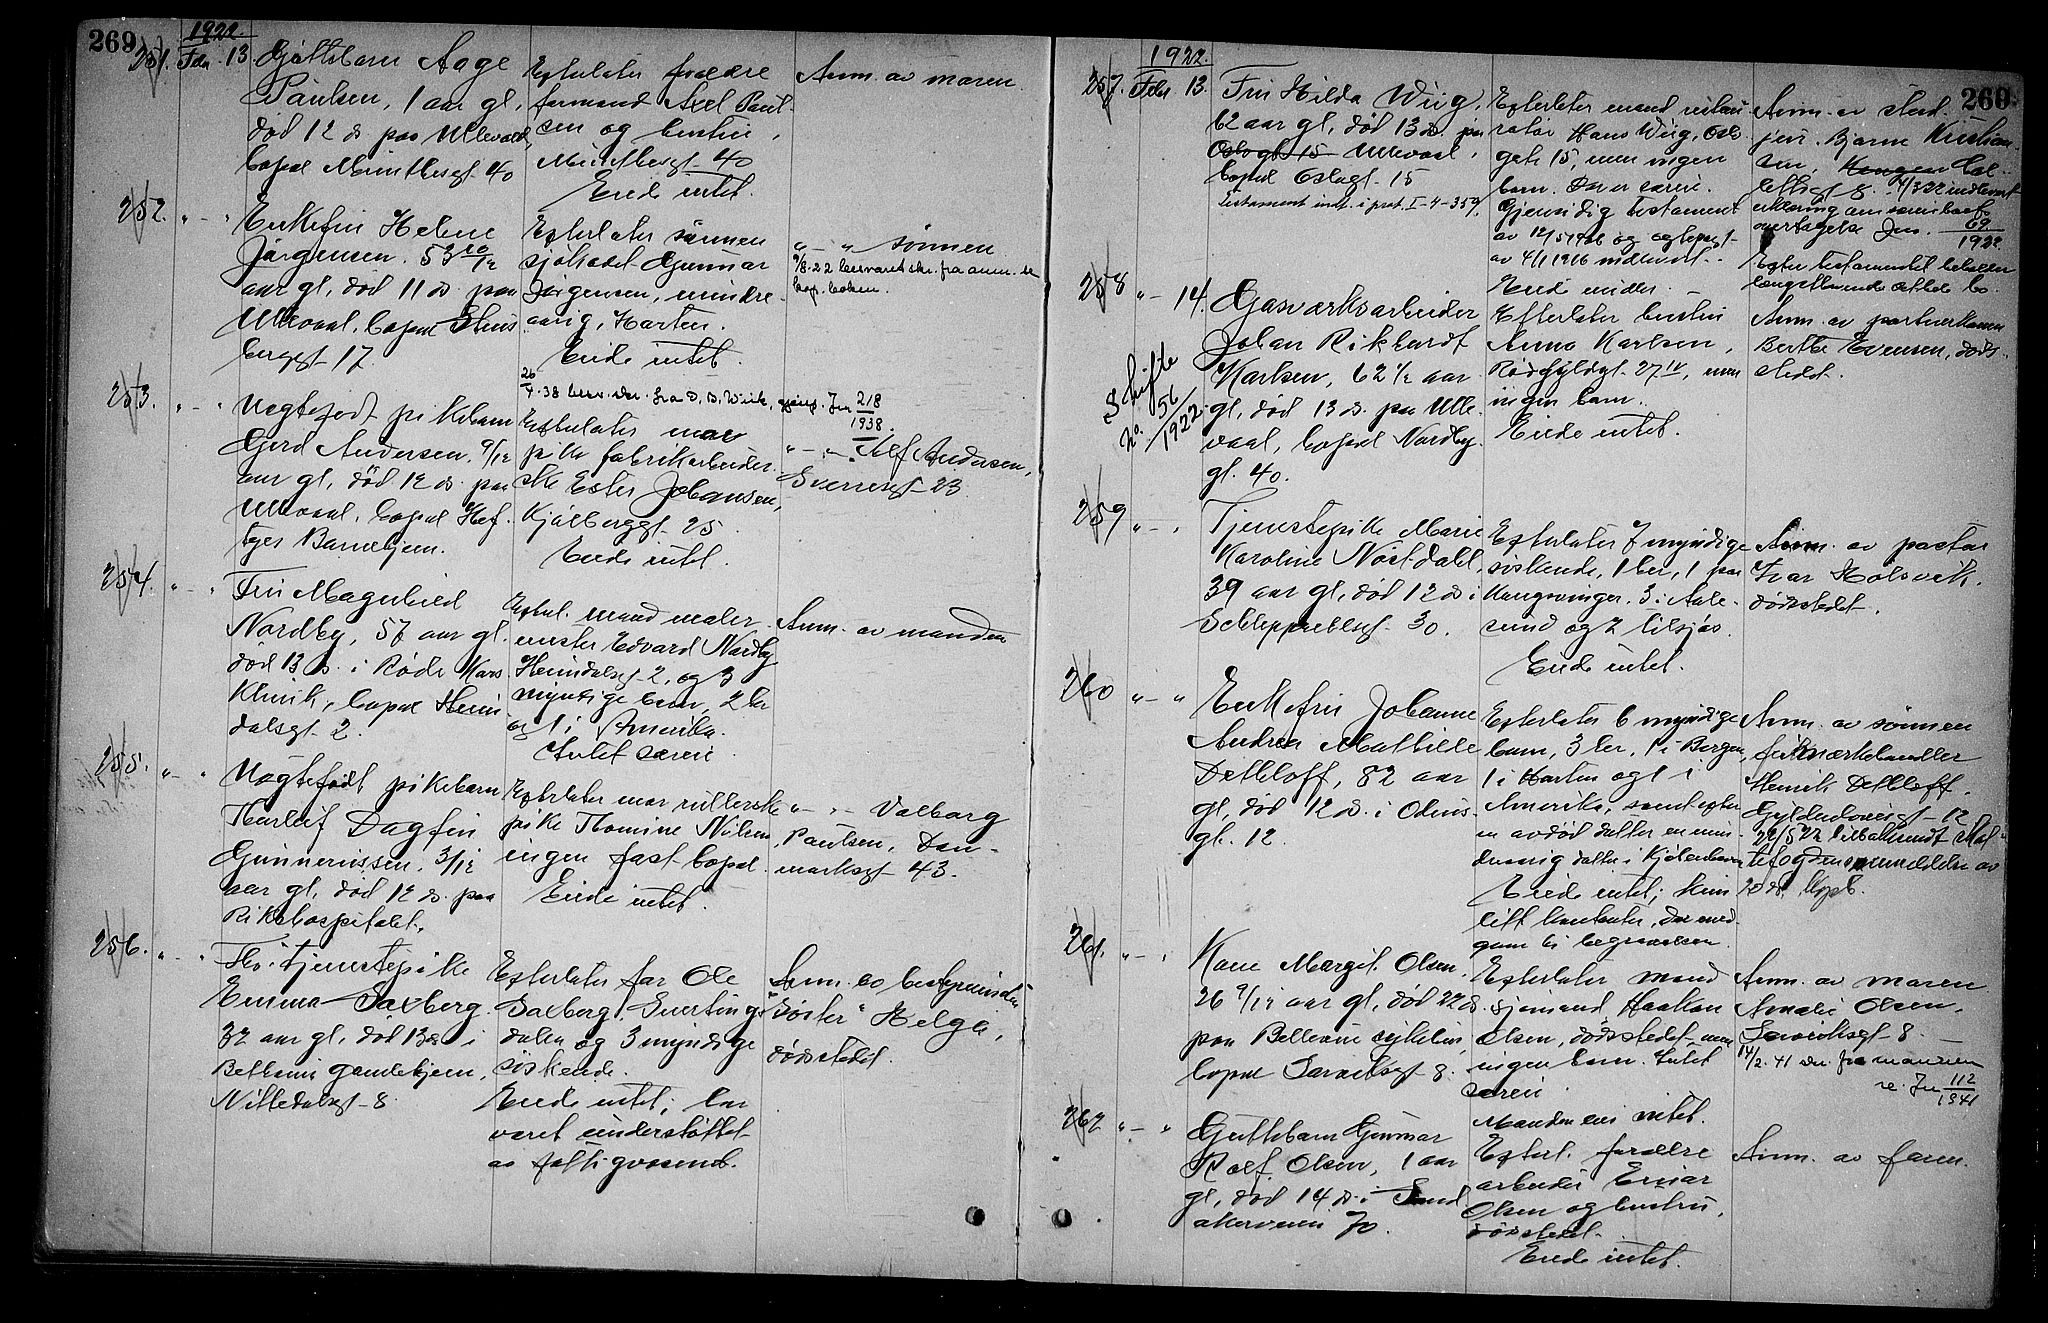 269
1922.
251. Febr. 13.
Gjutebarn Aage
Paulsen, 1 aar gl,
død 12 ds. paa Ullevaal,
bopæl Munthesgt 40
Efterlater forældre
formand Axel Paul-
sen og hustru,
Munthesgt 40
Eiede intet.
Anm. av moren
252. " — "
Enkefru Helene
Jørgensen. 53 10/12
aar gl, død 11 ds. paa
Ullevaal, bopæl
bergsgt 17.
Efterlater sønnen
sjøkadet Gunnar
Jørgensen, mindre-
aarig, Horten.
Eiede intet.
" — " sønnen
9/8-22 besvaret skr. fra anm. se
kop. boken.
26
4-38 besv. skr. fra O. B. Wiik, Jnr 218
1938.
253. " — "
Uegtefødt pikebarn
Gjerd Andersen, 9/12
aar gl, død 12 ds. paa
Ullevaal, bopæl Hef-
tyes Barnehjem.
Efterlater mor
pike fabrikarbeider-
ske Ester Johansen,
Kjølberggt. 25
Eiede intet.
" — " Alf Andersen,
Sverresgt 23
254. " — "
Fru Magnhild
Nordby, 57 aar gl.
død 13 ds. i Røde Kors
Klinik, bopæl Heim
dalsgt 2.
Efterl. mand maler-
mester Edvard Nordby
Heimdalsgt 2, og 3
myndige barn, 2 her
og 1 i Amerika.
Intet særeie.
Anm. av manden
255. " — "
Uegtefødt pikebarn
Thorleif Dagfin
Gunnerussen, 3/12
aar gl, død 12 ds. paa
Rikshospitalet.
Efterlater mor rullerske
pike Thomine Nilsen,
ingen fast bopæl.
Eiede intet.
" — " Valborg
Paulsen, Dan-
marksgt 43.
256. " — "
Fhv. tjenestepike
Emma Saxberg
32 aar gl, død 13 ds i
Bethania gamlehjem,
Nittedalsgt 8.
Efterlater far Ole
Saxberg,
dalen og 3 myndige
søskende.
Eiede intet; har
været understøttet
av fattigvæsenet.
Anm. av bestyrerinden
"Søster" Helga,
dødsstedet.
269
1922.
257. Febr. 13.
Fru Hilda Wiig,
62 aar gl, død 13 ds. paa
Oslogt 15 Ullevaal,
bopæl Oslogt. 15
Testament indt. i prot. I-4-359.
Efterlater mand restau
ratør Hans Wiig, Oslo
gate 15, men ingen
barn. Der er særeie.
Gjensidig testament
av 12/5 1906 og egtepagt
av 4/1 1916 indlevert.
Eiede midler.
Anm. av stud.
jur. Bjarne Kristian-
sen,
lettsgt 8. 4/3 22 indlevert
erklæring om særeiboets
overtagelse Jnr. 69
1922
Efter testamentet beholder
længstlevende ettele bo.
258 " — 14.
Skifte
No. 56
1922
Gasverksarbeider
Johan Rikhardt
Karlsen, 62 1/2 aar
gl, død 13 ds. paa Ulle-
vaal, bopæl Nordby-
gt. 40.
Efterlater hustru
Anna Karlsen,
Rødfyldgt. 27 IV, men
ingen barn.
Eiede intet.
Anm. av portnerkonen
Berthe Evensen, døds-
stedet.
259 " — "
Tjenestepike Marie
Karoline Nostdahl,
39 aar gl, død 12 ds i
Schleppegrellsgt 30.
Efterlater 7 myndige
søskende, 1 her, 1 paa
Kongsvinger, 3 i Aale-
sund og 2 tilsjøs.
Eiede intet.
Anm. av pastor
Ivar Holsvik.
dødsstedet.
260 " — "
Enkefru Johanne
Andrea Mathilde
Dethloff, 82 aar
gl, død 12 ds. i Odins-
gt. 12.
Efterlater 6 myndige
barn, 3 her, 1 i Bergen,
1 i Horten og 1 i
Amerika, samt efter
en avdød datter en min-
dreaarig datter i Kjøbenhavn.
Eiede intet; kun
litt kontanter, der med-
gaar til begravelsen.
Anm. av sønnen
frimærkehandler
Henrik Dethloff.
Gyldenløvesgt 12
22/5 22 tilbakesendt
tefogdens anmeldelse av
20 ds. Kpb.
261. " — "
Kone Margit Olsen,
26 9/12 aar gl, død 22 ds.
paa Bellevue sykehus,
bopæl Sarsvikgt 8.
Efterlater mand
sjømand Haakon
Olsen, dødsstedet, men
ingen barn. Intet
særeie
Manden eier intet.
Anm. av moren
Amalie Olsen,
gt 8 —
14/2. 41 skr fra mannen
re. Jnr 112
1941
262 " — "
Guttebarn Gunnar
Rolf Olsen, 1 aar
gl, død 14 ds. i Sand
akerveien 70.
Efterl. forældre
arbeider Einar
Olsen og hustru,
dødsstedet.
Eiede intet.
Anm. av faren.